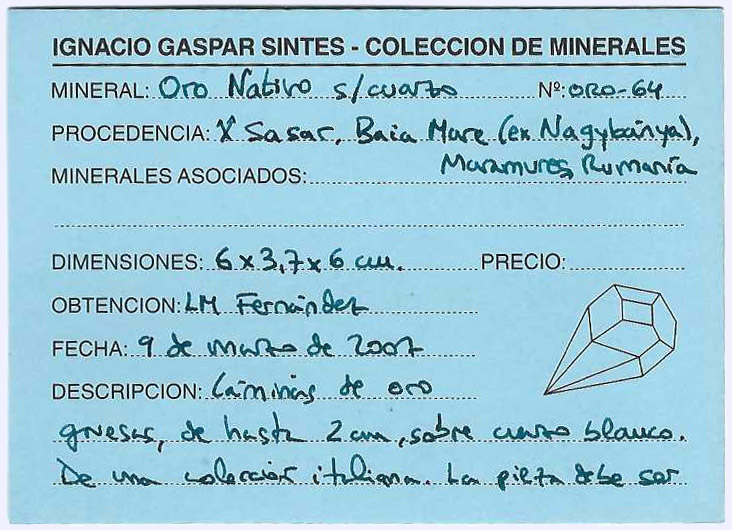 IGNACIO GASPAR SINTES - COLECCION DE MINERALES
MINERAL: Oro Nativo s/cuarzo Nº: ORO-64
PROCEDENCIA: Sasar, Baia Mare (ex Nagybánya),
Maramures, Rumanía
MINERALES ASOCIADOS:
DIMENSIONES: 6 x 3,7 x 6 cm. PRECIO:
OBTENCION: LM Fernández
FECHA: 9 de marzo de 2007
DESCRIPCION: Láminas de oro
gruesas, de hasta 2 cm, sobre cuarzo blanco.
De una colección italiana. La pieza debe ser